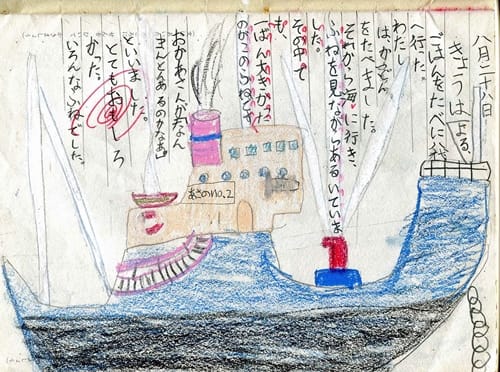 八月二十八日
きょうは、よる、
ごはんをたべに
へ行った。
わたし
は、かつどん
をたべました。
それから海に行き、
ふねを見ながらあるいていま
した。
その中で
も、
一ばん大きかった
のがこのふねです。
おかあさんが「なん
まんとんあるのかなぁ」
といいました。
とてもおもしろ
かった。
いろんなふねでした。
あきのno.2